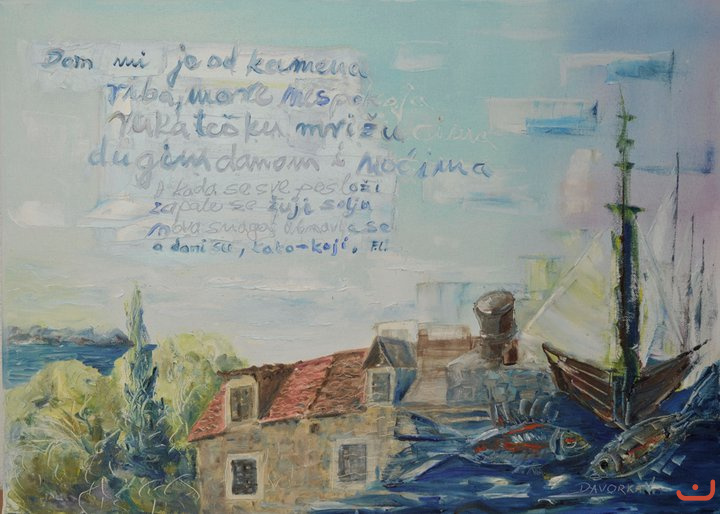 Dom mi je od kamena
riba, more nespokoja
ruka tešku mrižu
dugim danom i noćima
A kada se sve posloži
zapale se žuji solju
nova snaga obnavlja se
a dani su, kako-koji. F.L.
DAVORKA